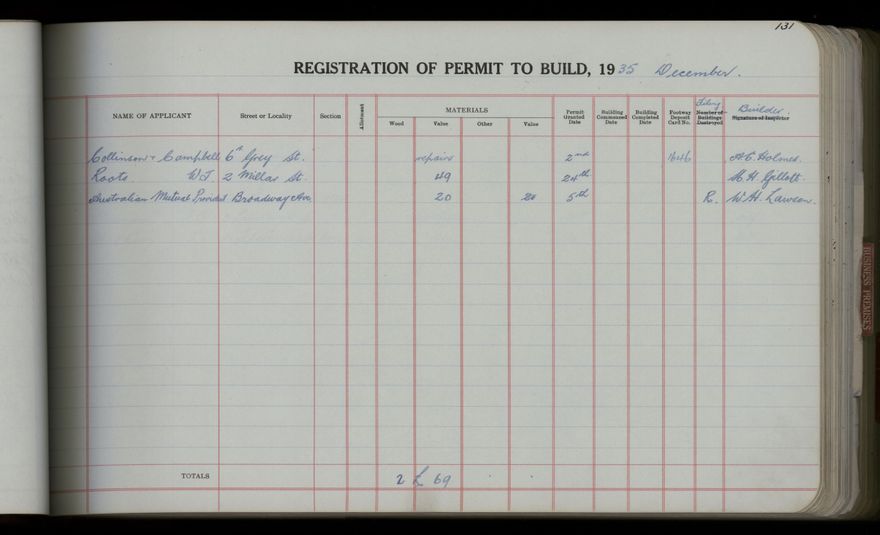 131
REGISTRATION OF PERMIT TO BUILD, 1935 December.
NAME OF APPLICANT Street or Locality Section Allotment MATERIALS Wood Value Other Value Permit Granted Date Building Commenced Date Building Completed Date Footway Deposit Card No. Filing Number of Buildings Destroyed Builder Signature of Inspector
Collinson & Campbell 6 Grey St. repairs 2nd 1646 A.C. Holmes.
Roots. W.J. 2 Millar St. 49 24th H. Gillott.
Australian Mutual Provident Broadway Ave. 20 20 5th R. W.H. Lawson.
TOTALS 2 £ 69
BUSINESS PREMISES